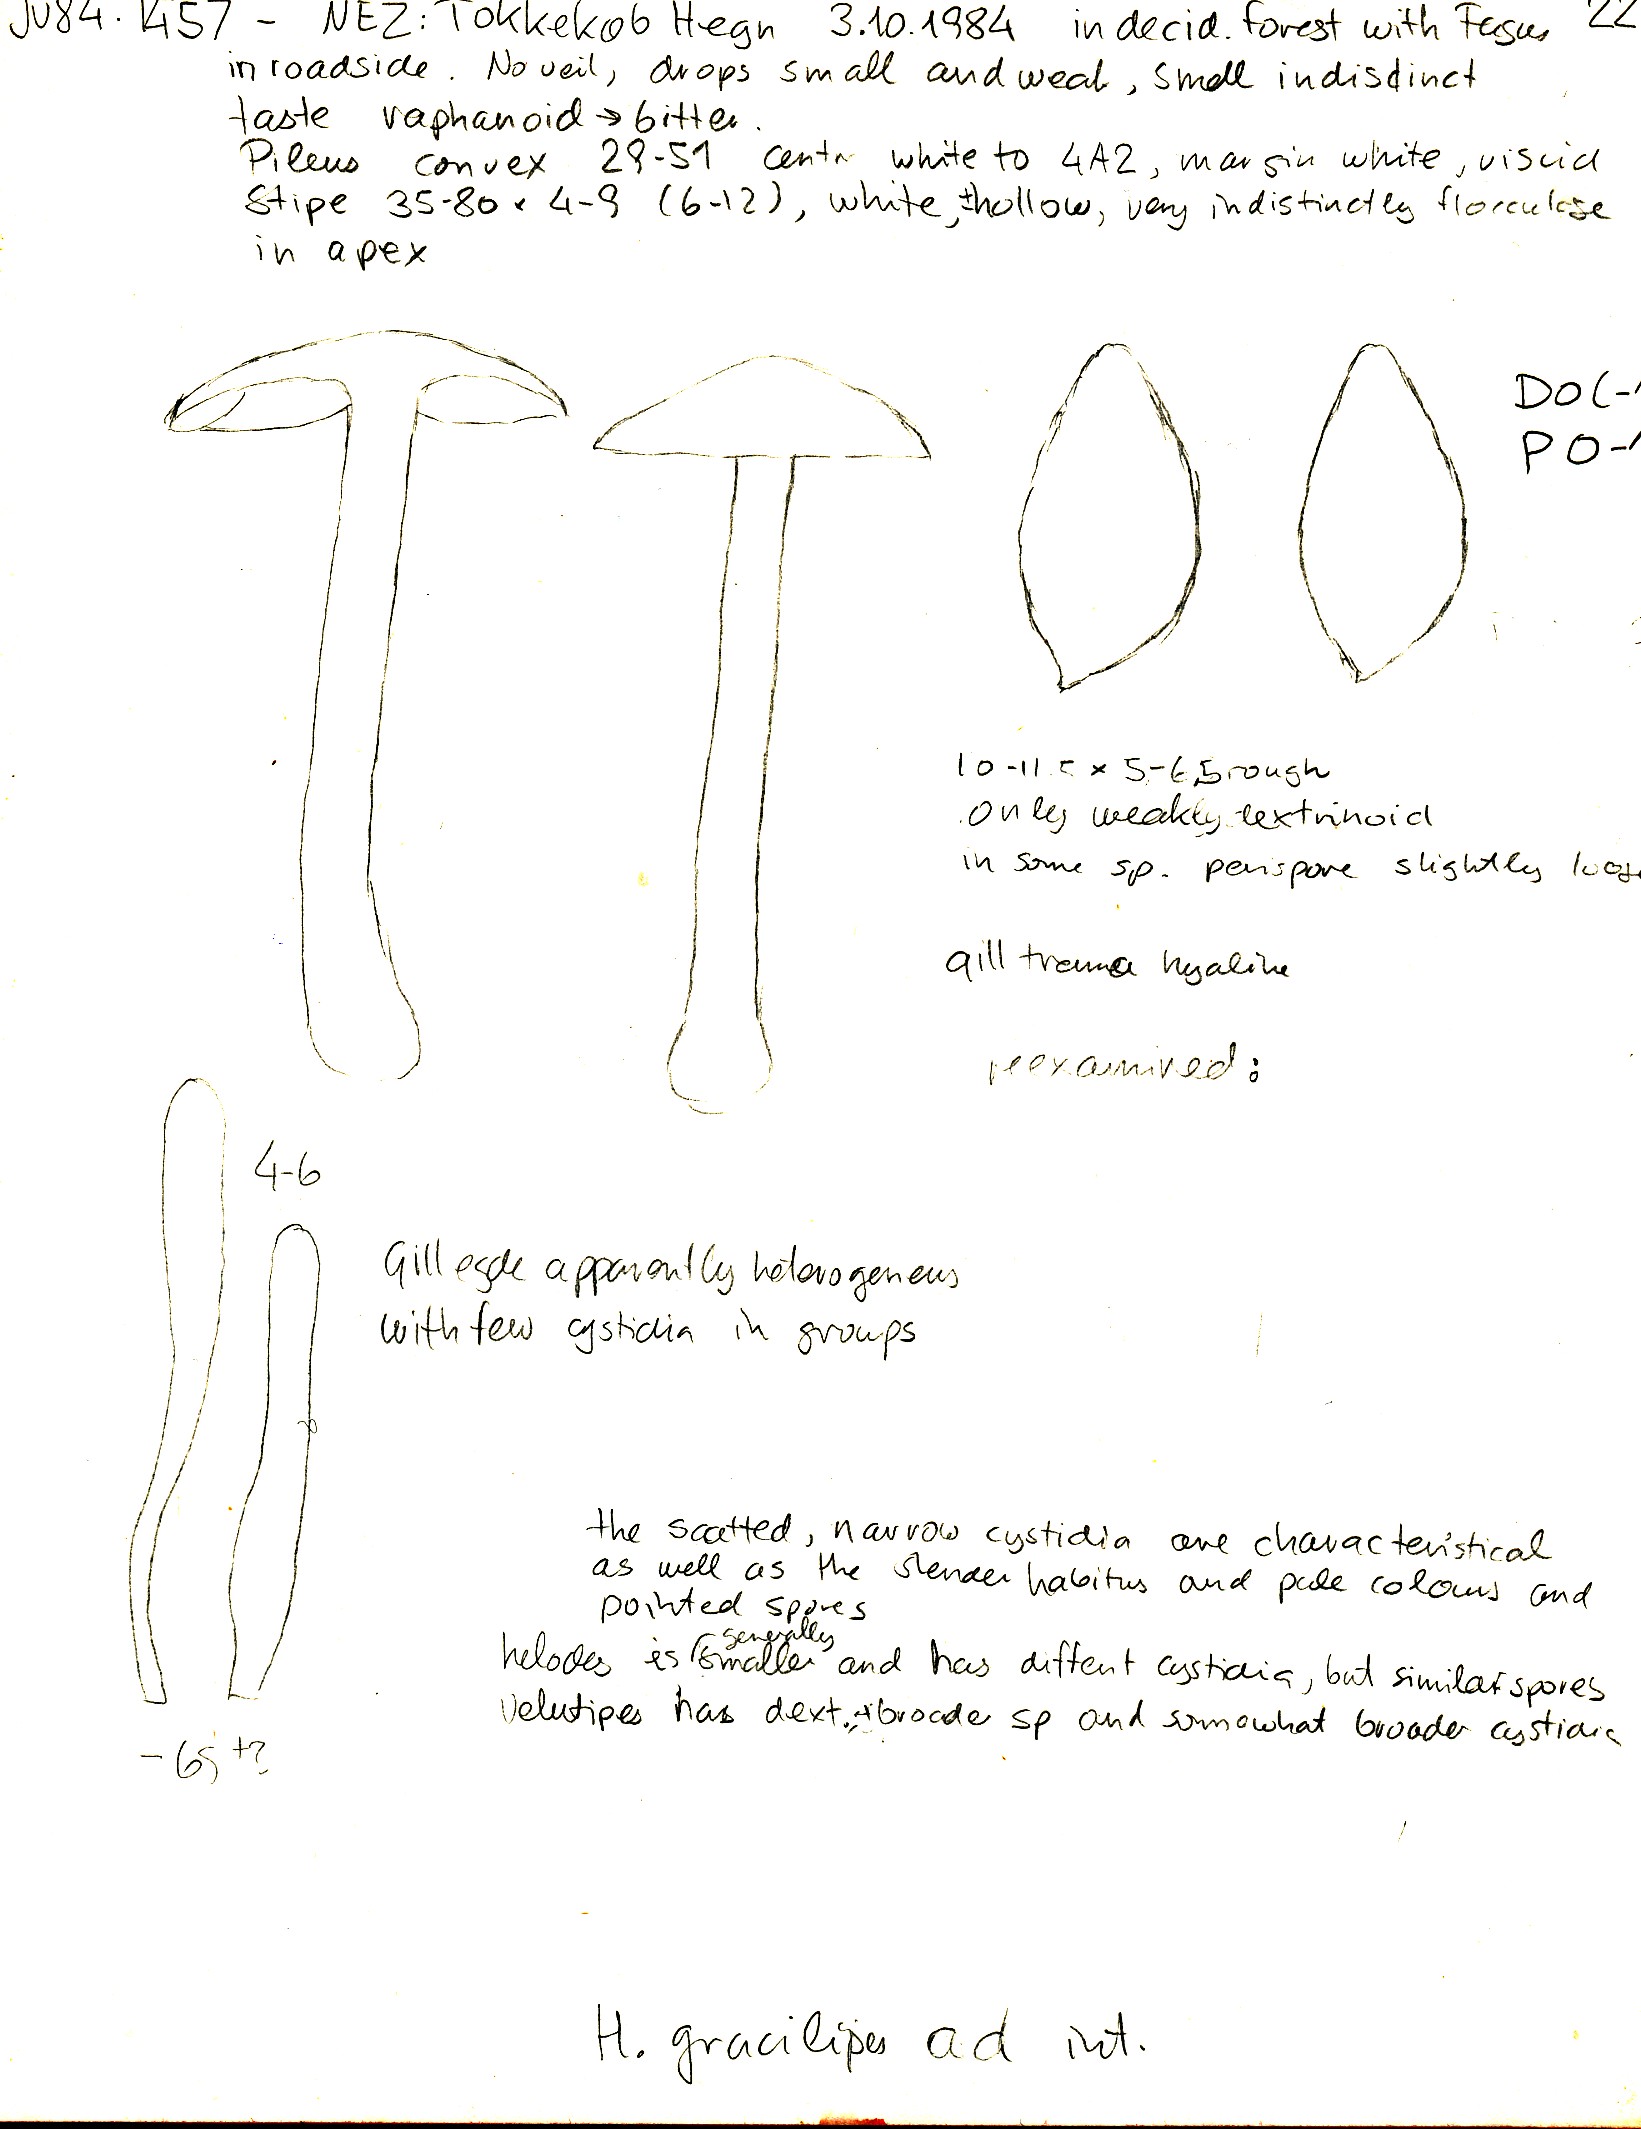 JV84-1457 - NEZ: Tokkekøb Hegn 3.10.1984 in decid. forest with Fagus 22
in roadside. No veil, drops small and weak, smell indistinct
taste raphanoid → bitter.
Pileus convex 29-51 centr white to 4A2, margin white, viscid
Stipe 35-80 × 4-9 (6-12), white, ± hollow, very indistinctly flocculose
in apex
DO(-
PO-
10-11.5 × 5-6,5 rough
only weakly dextrinoid
in some sp. perispore slightly loose
gill trama hyaline
reexamined:
4-6
Gill egde apparently heterogeneus
with few cystidia in groups
the scatted, narrow cystidia are characteristical
as well as the slender habitus and pale colours and
pointed spores
helodes is generally smaller and has diffent cystidia, but similar spores
Velutipes has dext., broade sp and somowhat broader cystidia
-65 +?
H. gracilipes ad int.